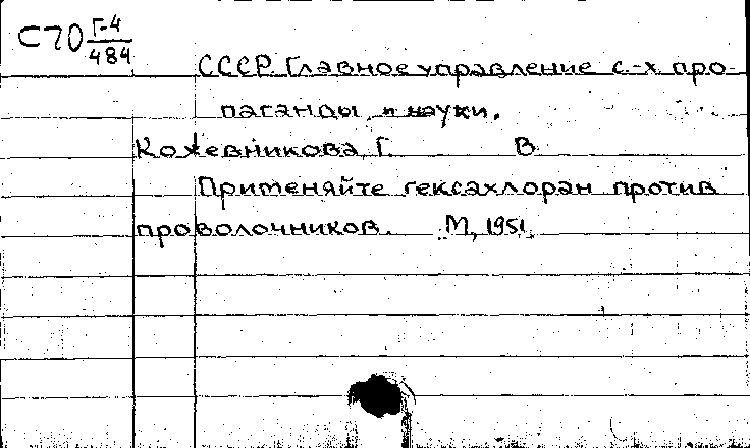 С70 Г-4
484
СССР. Главное управление с.-х. про-
паганды и науки.
Кожевникова, Г. В.
Применяйте гексахлоран против
проволочников. М., 1951.